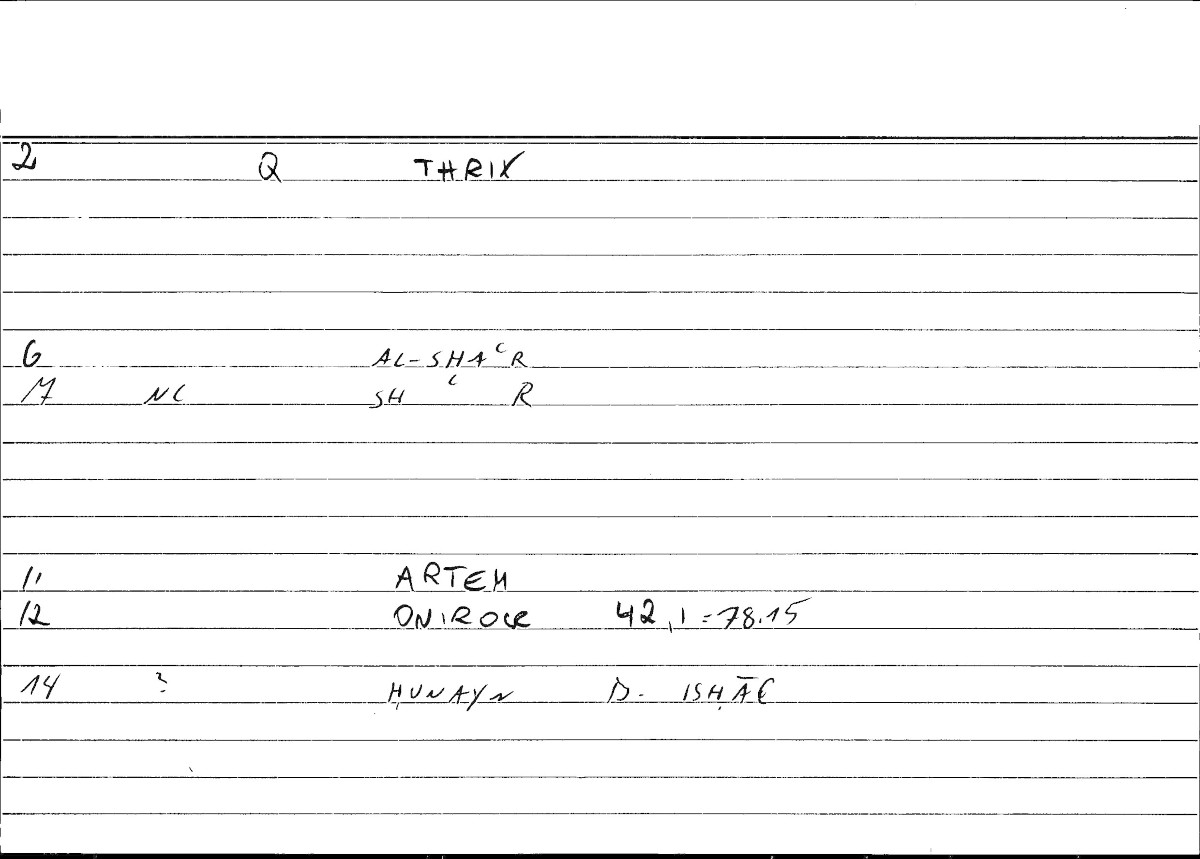 2 Q THRIX
6 AL-SHAʿR
M NC SH ʿ R
11 ARTEM
12 ONIROCR 42,1=78.15
14 ? ḤUNAYN B. ISḤĀC